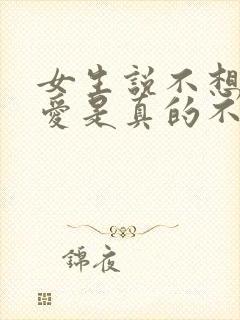 女生說不想
愛是真的不
錦夜